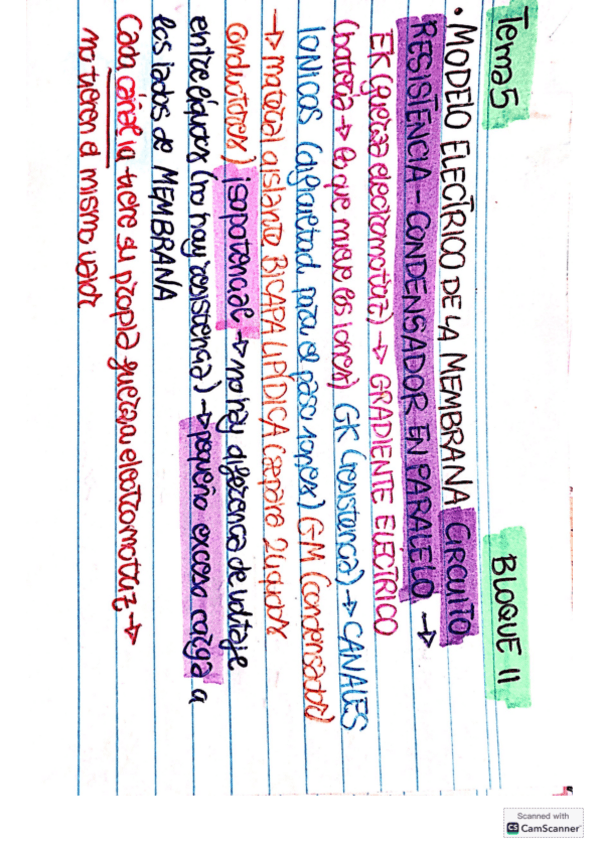 Tema 5
BLOQUE II
• MODELO ELÉCTRICO DE LA MEMBRANA CIRCUITO
RESISTENCIA - CONDENSADOR EN PARALELO →
EK (fuerza electromotriz) → GRADIENTE ELÉCTRICO
(batería → lo que mueve los iones) GK (resistencia) → CANALES
IONICOS (dificultad para el paso iones) GM (condensador)
→ material aislante BICAPA LIPÍDICA (separa 2 liquidos
conductores) isopotencial → no hay diferencia de voltaje
entre líquidos (no hay resistencia) → pequeño exceso carga a
los lados de MEMBRANA
Cada canal ia tiene su propia fuerza electromotriz →
no tienen el mismo valor
Scanned with
CS CamScanner